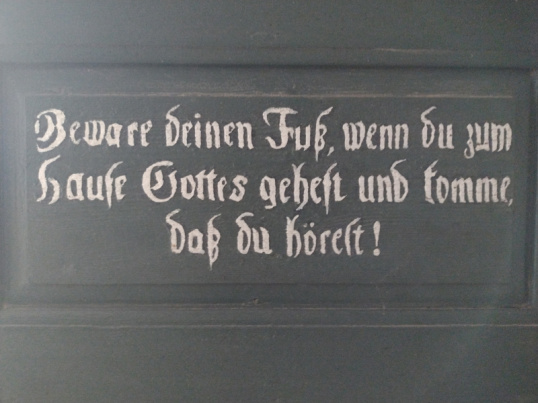 Beware deinen Fuß, wenn du zum
Hause Gottes gehest und komme,
daß du hörest!